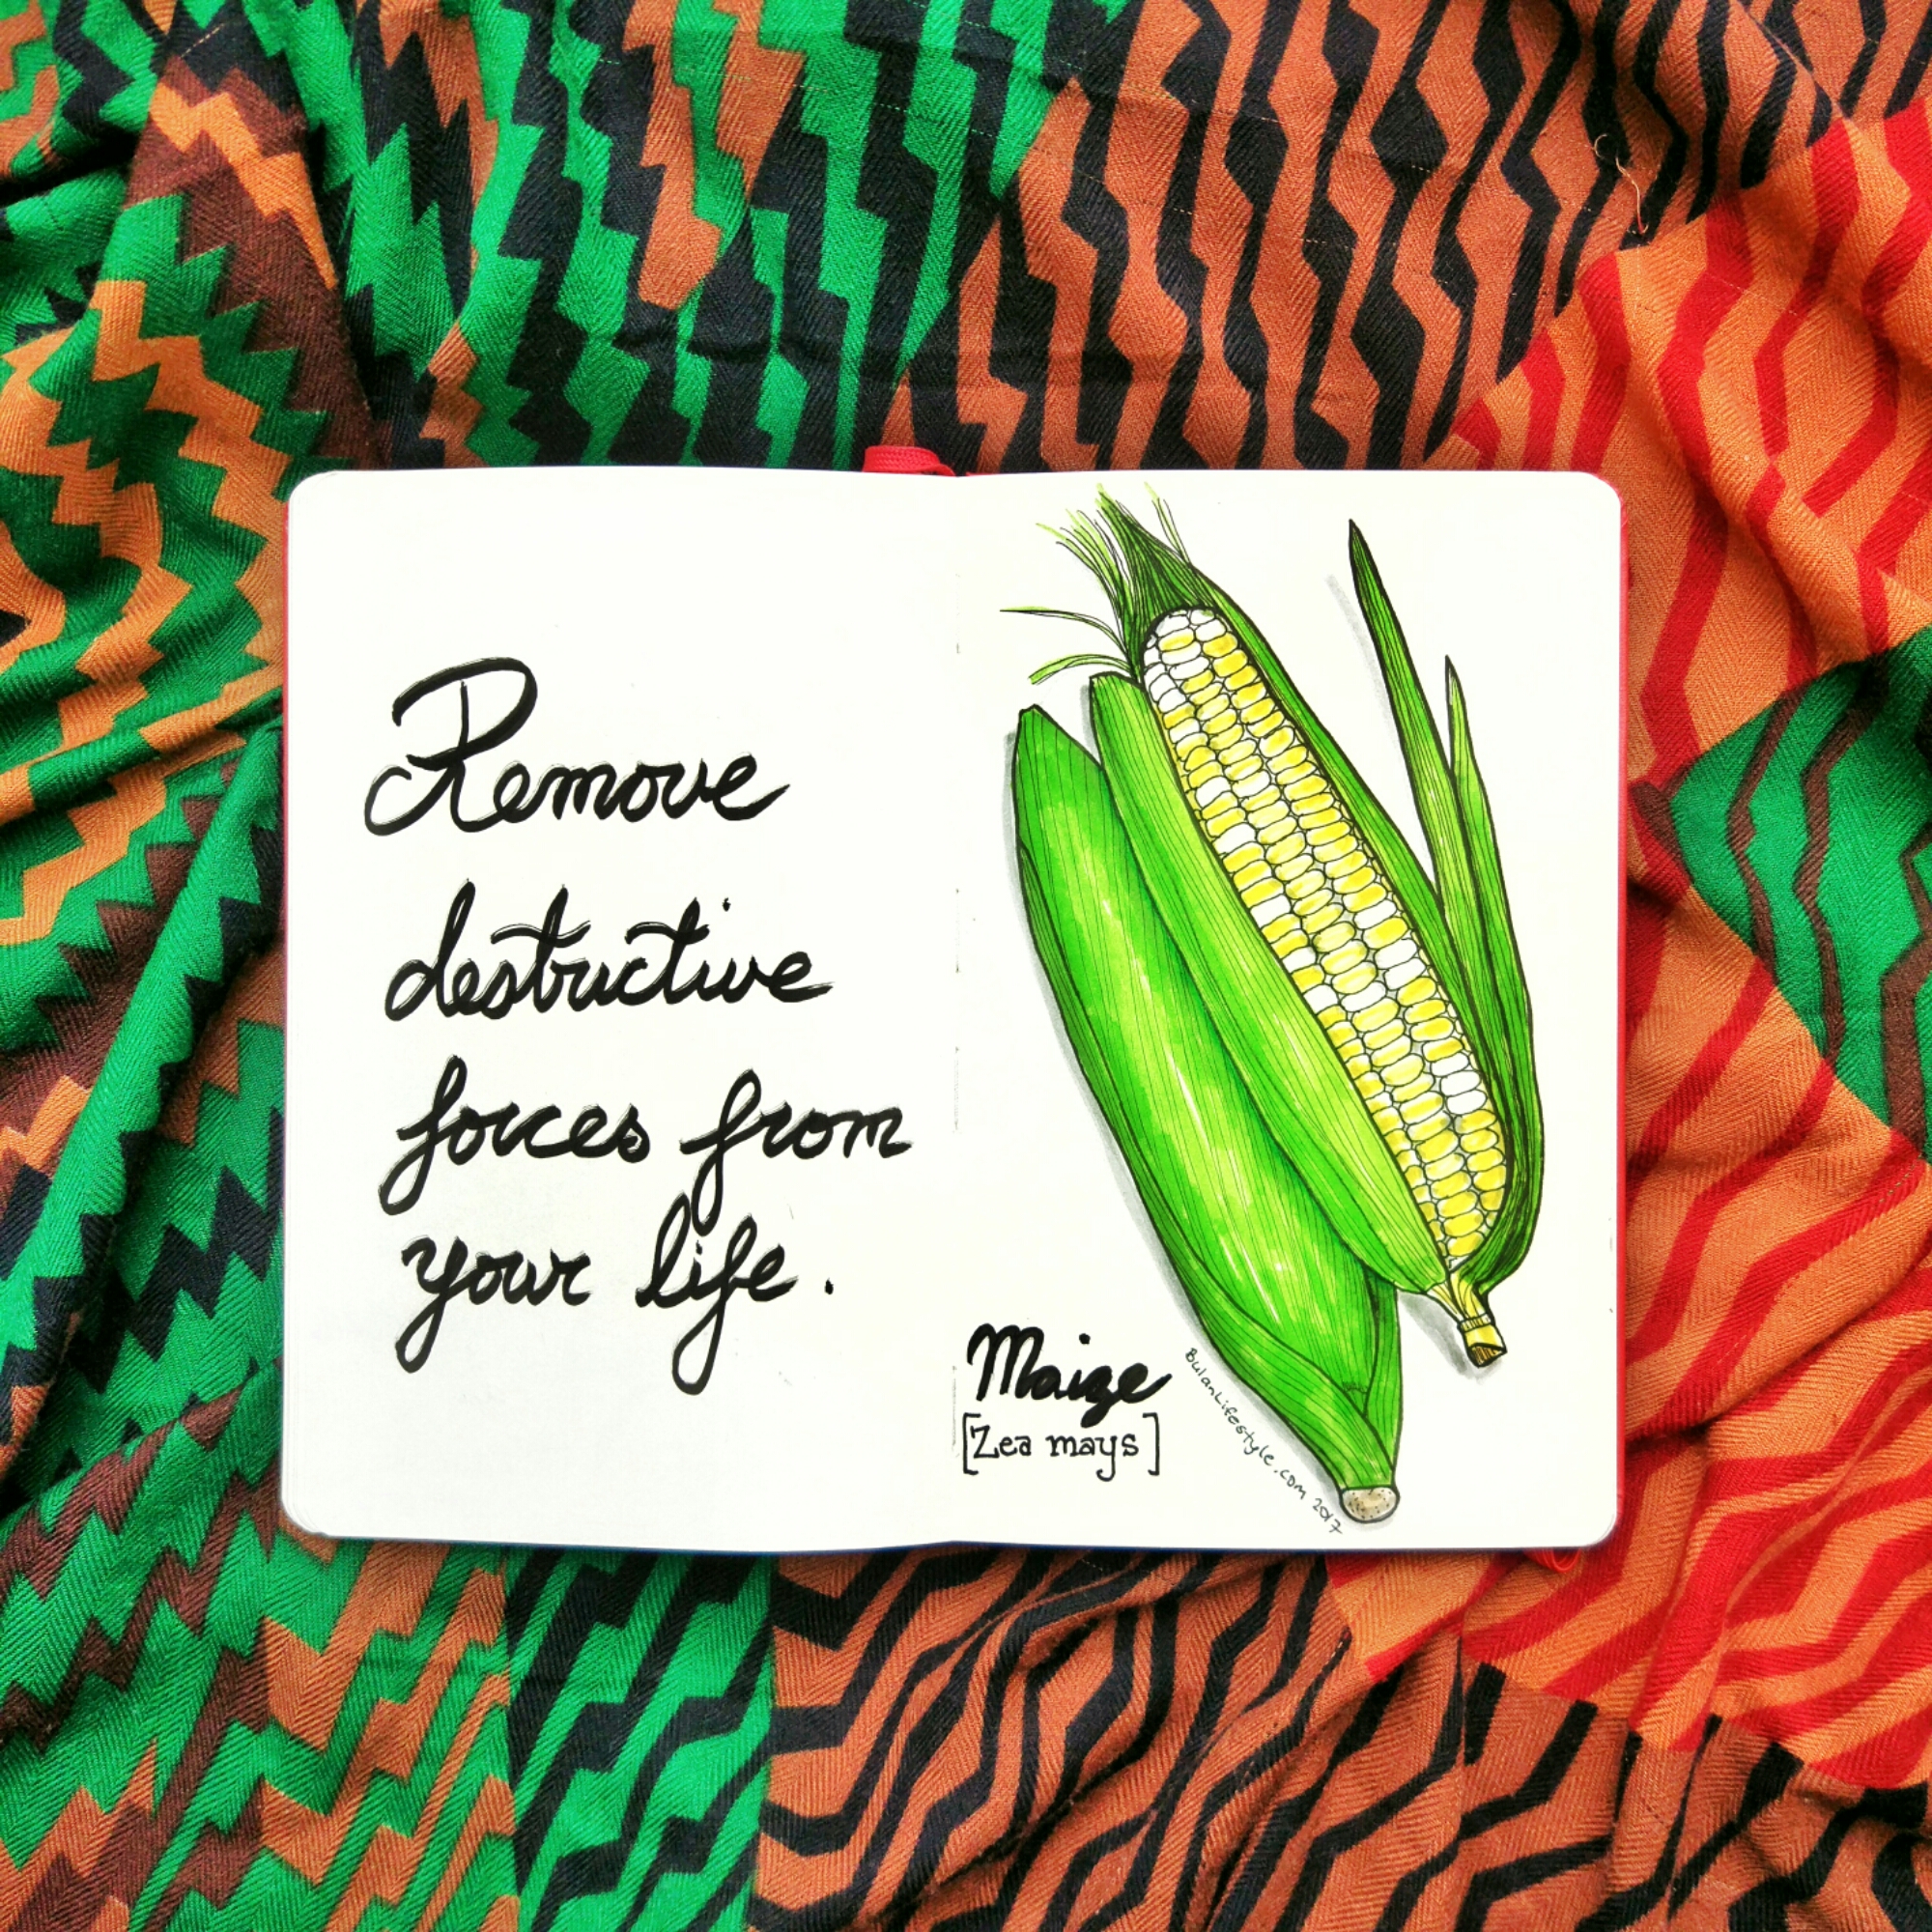 Remove
destructive
forces from
your life.
Maize
[Zea mays]
BulanLifestyle.com 2017